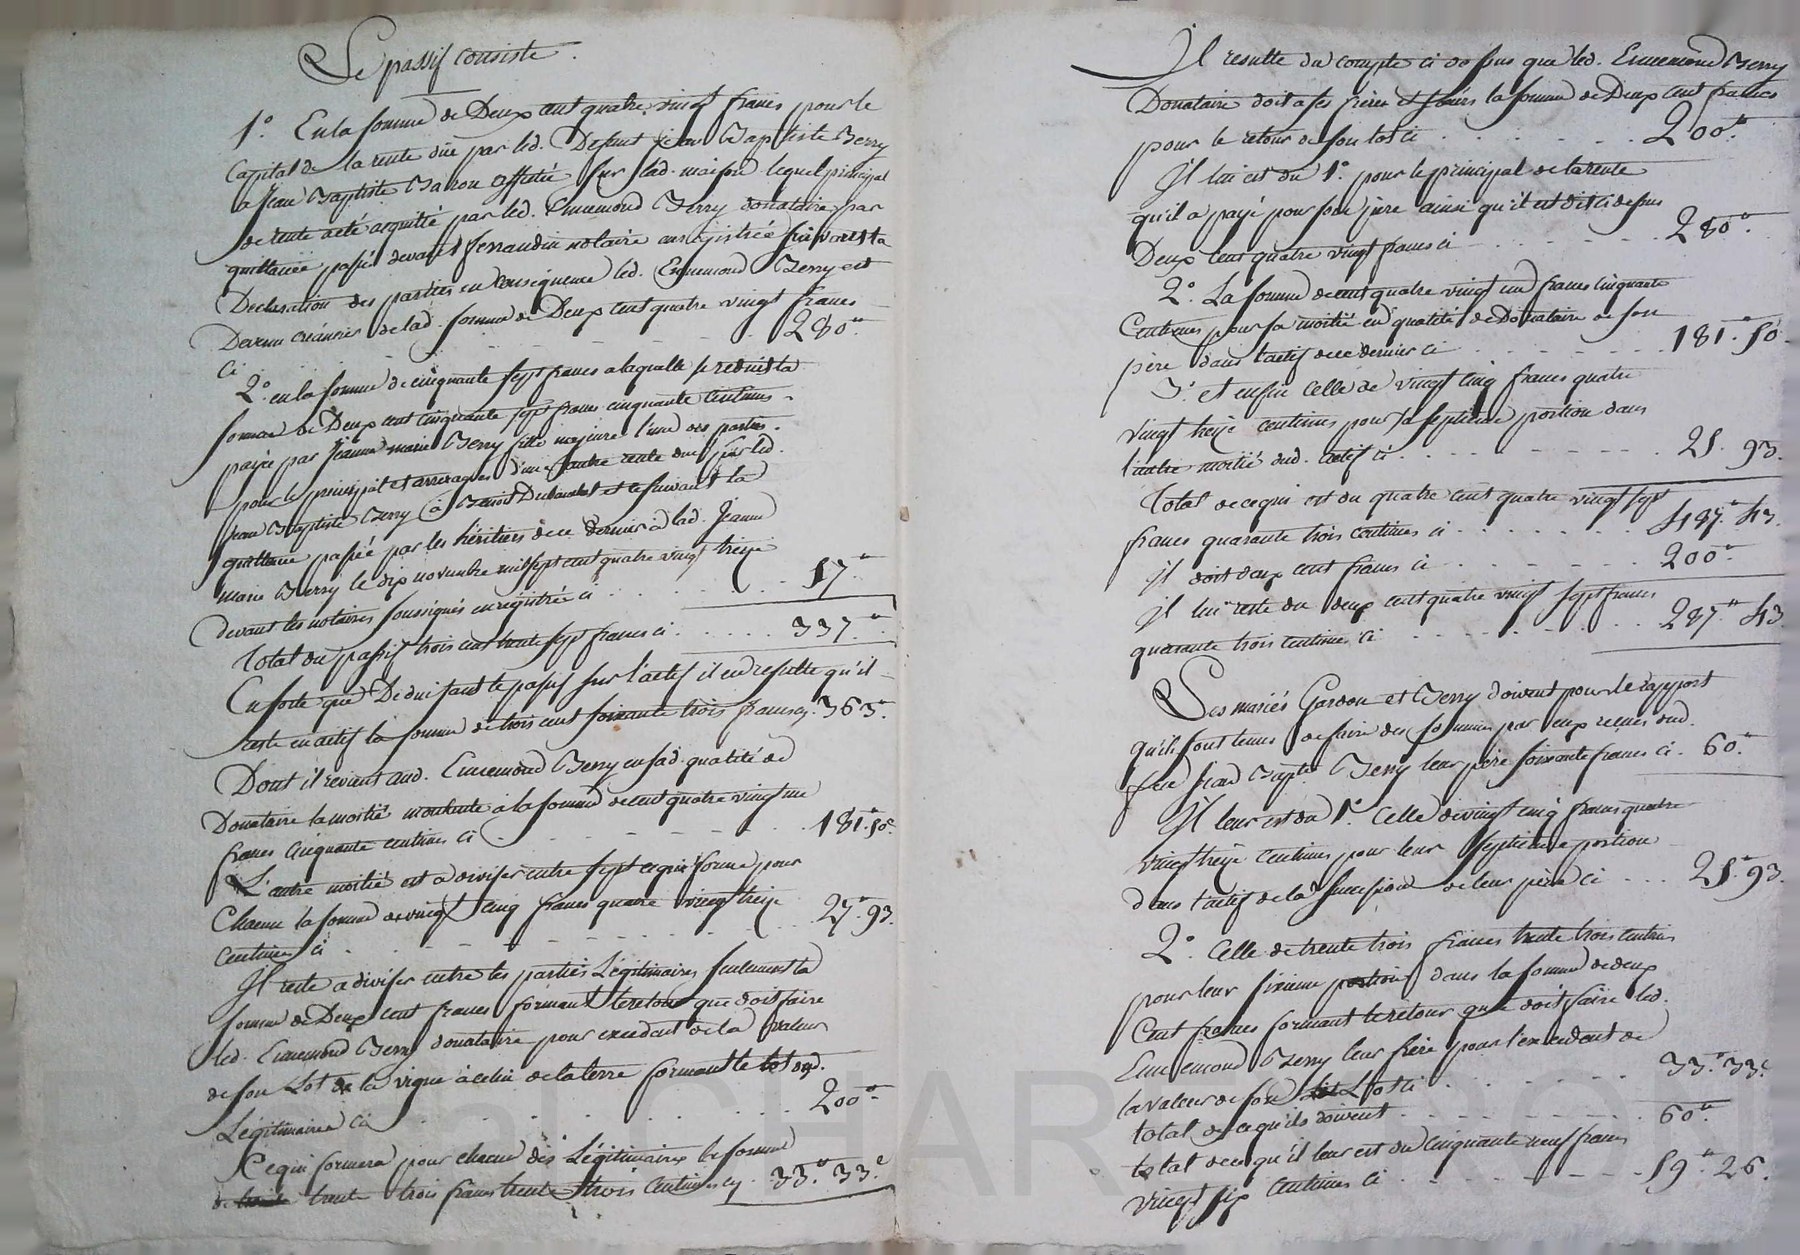 Le passif consiste.
1°. En la somme de Deux cent quatre vingt francs pour le
Capital de la rente düe par led. Defunt jean Baptiste Berry
a Jean Baptiste Baron affectée sur lad. maison lequel principal
de rente a eté acquitté par led. Ennemond Berry donataire par
quittance passée devant ferrandin notaire enregistrée suivant la
Declaration des parties en consequence led. Ennemond Berry est
Devenu créancier de lad. somme de Deux cent quatre vingt francs
ci . . . . 280.tt
2°. en la somme de cinquante sept francs a laquelle se reduit la
somme de Deux cent cinquante sept francs cinquante centimes.
payée par Jeanne marie Berry fille majeure l'une des parties.
pour le principal et arrerages d'une autre rente due par led.
Jean Baptiste Berry à Benoit et ce suivant la
quittance passée par les héritiers de ce dernier à lad. Jeanne
marie Berry le dix novembre mil sept cent quatre vingt treize
devant les notaires soussignés enregistrée ci . . . . . . 57.tt
Total du passif trois cent trente sept francs ci . . . . . 337.tt
Ensorte que Deduisant le passif sur l'actif il en resulte qu'il
reste en actif la somme de trois cent soixante trois francs cy. 363.tt
Dont il revient aud. Ennemond Berry en sad. qualité de
Donataire la moitié montante à la somme de cent quatre vingt un
francs cinquante centimes ci . . . . 181.tt 50c.
L'autre moitié est a diviser entre sept ce qui forme pour
Chacun la somme de vingt cinq francs quatre vingt treize
centimes ci . . . . 25.tt 93.
Il reste a diviser entre les parties Légitimaires seulement la
somme de Deux cent francs formant le retour que doit faire
led. Ennemond Berry donataire pour excedant de la valeur
de son Lot de la vigne à celui de la terre formant le lot des.
Légitimaires ci . . . . 200.tt
Ce qui formera pour chacun des Légitimaires la somme
de trente trois francs trente trois centimes cy. 33.tt 33.c
Il resulte du compte ci dessus que led. Ennemond Berry
Donataire doit a ses frères et sœurs la somme de Deux cent francs
pour le retour de son lot ci . . . . . . 200.tt
Il lui est du 1°. pour le principal de la rente
qu'il a payé pour son père ainsi qu'il est dit ci dessus
Deux cent quatre vingt francs ci . . . . . . 280.tt
2°. La somme de cent quatre vingt un francs cinquante
Centimes pour sa moitié en qualité de Donataire de son
père dans l'actif de ce dernier ci . . . . . . 181.tt 50.
3°. et enfin celle de vingt cinq francs quatre
vingt treize centimes pour sa septième portion dans
l'autre moitié dud. actif ci . . . . . . 25. 93.
Total de ce qui est du quatre cent quatre vingt sept
francs quarante trois centimes ci . . . . . . 487.tt 43.
Il doit deux cent francs ci . . . . . . 200.tt
Il lui reste du deux cent quatre vingt sept francs
quarante trois centimes ci . . . . . . 287.tt 43.
Les mariés Gardon et Berry doivent pour le rapport
qu'ils sont tenus de faire des sommes par eux reçues dud.
feu Jean Baptiste Berry leur père soixante francs ci . 60.tt
Il leur est du 1°. Celle de vingt cinq francs quatre
vingt treize centimes pour leur septième portion
dans l'actif de la succession de leur père ci . . . 25.tt 93.
2°. Celle de trente trois francs trente trois centimes
pour leur sixième portion dans la somme de deux
Cent francs formant le retour que doit faire led.
Ennemond Berry leur frère pour l'excedent de
la valeur de son Lot ci . . . . . . 33.tt 33c.
total de ce qu'ils doivent . . . . . . 60.tt
total de ce qu'il leur est du cinquante neuf francs
vingt six centimes ci . . . . . . 59.tt 26.